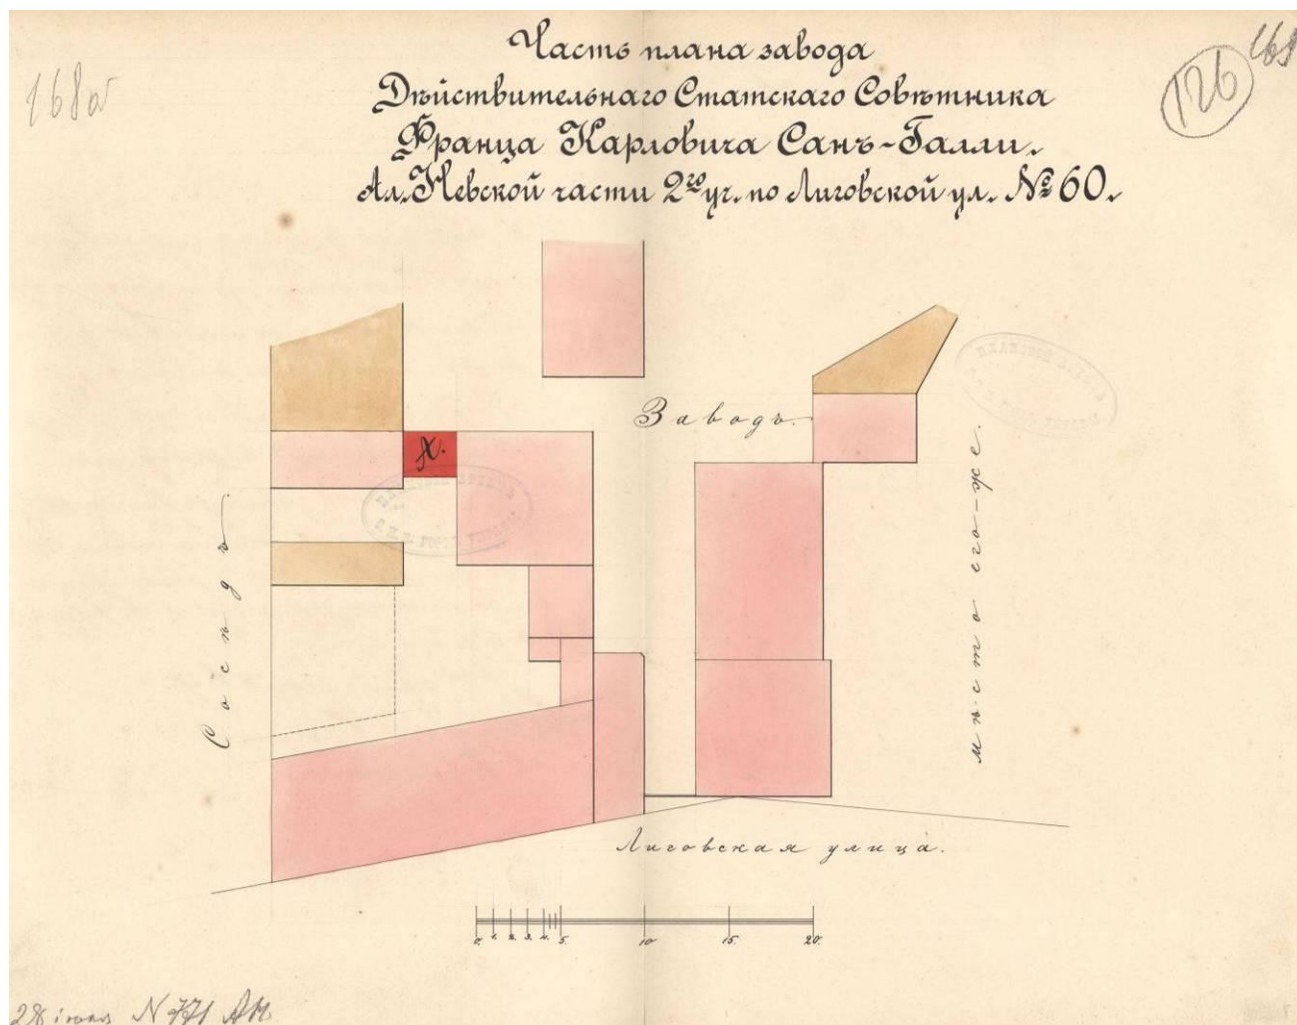 168а
126
168
Часть плана завода
Дѣйствительнаго Статскаго Совѣтника
Франца Карловича Санъ-Галли.
Ал. Невской части 2го уч. по Лиговской ул. № 60.
Заводъ.
X.
Сосѣдъ.
мѣсто его-же.
Лиговская улица.
0. 1. 2. 3. 4. 5. 10 15. 20.
28 N 771